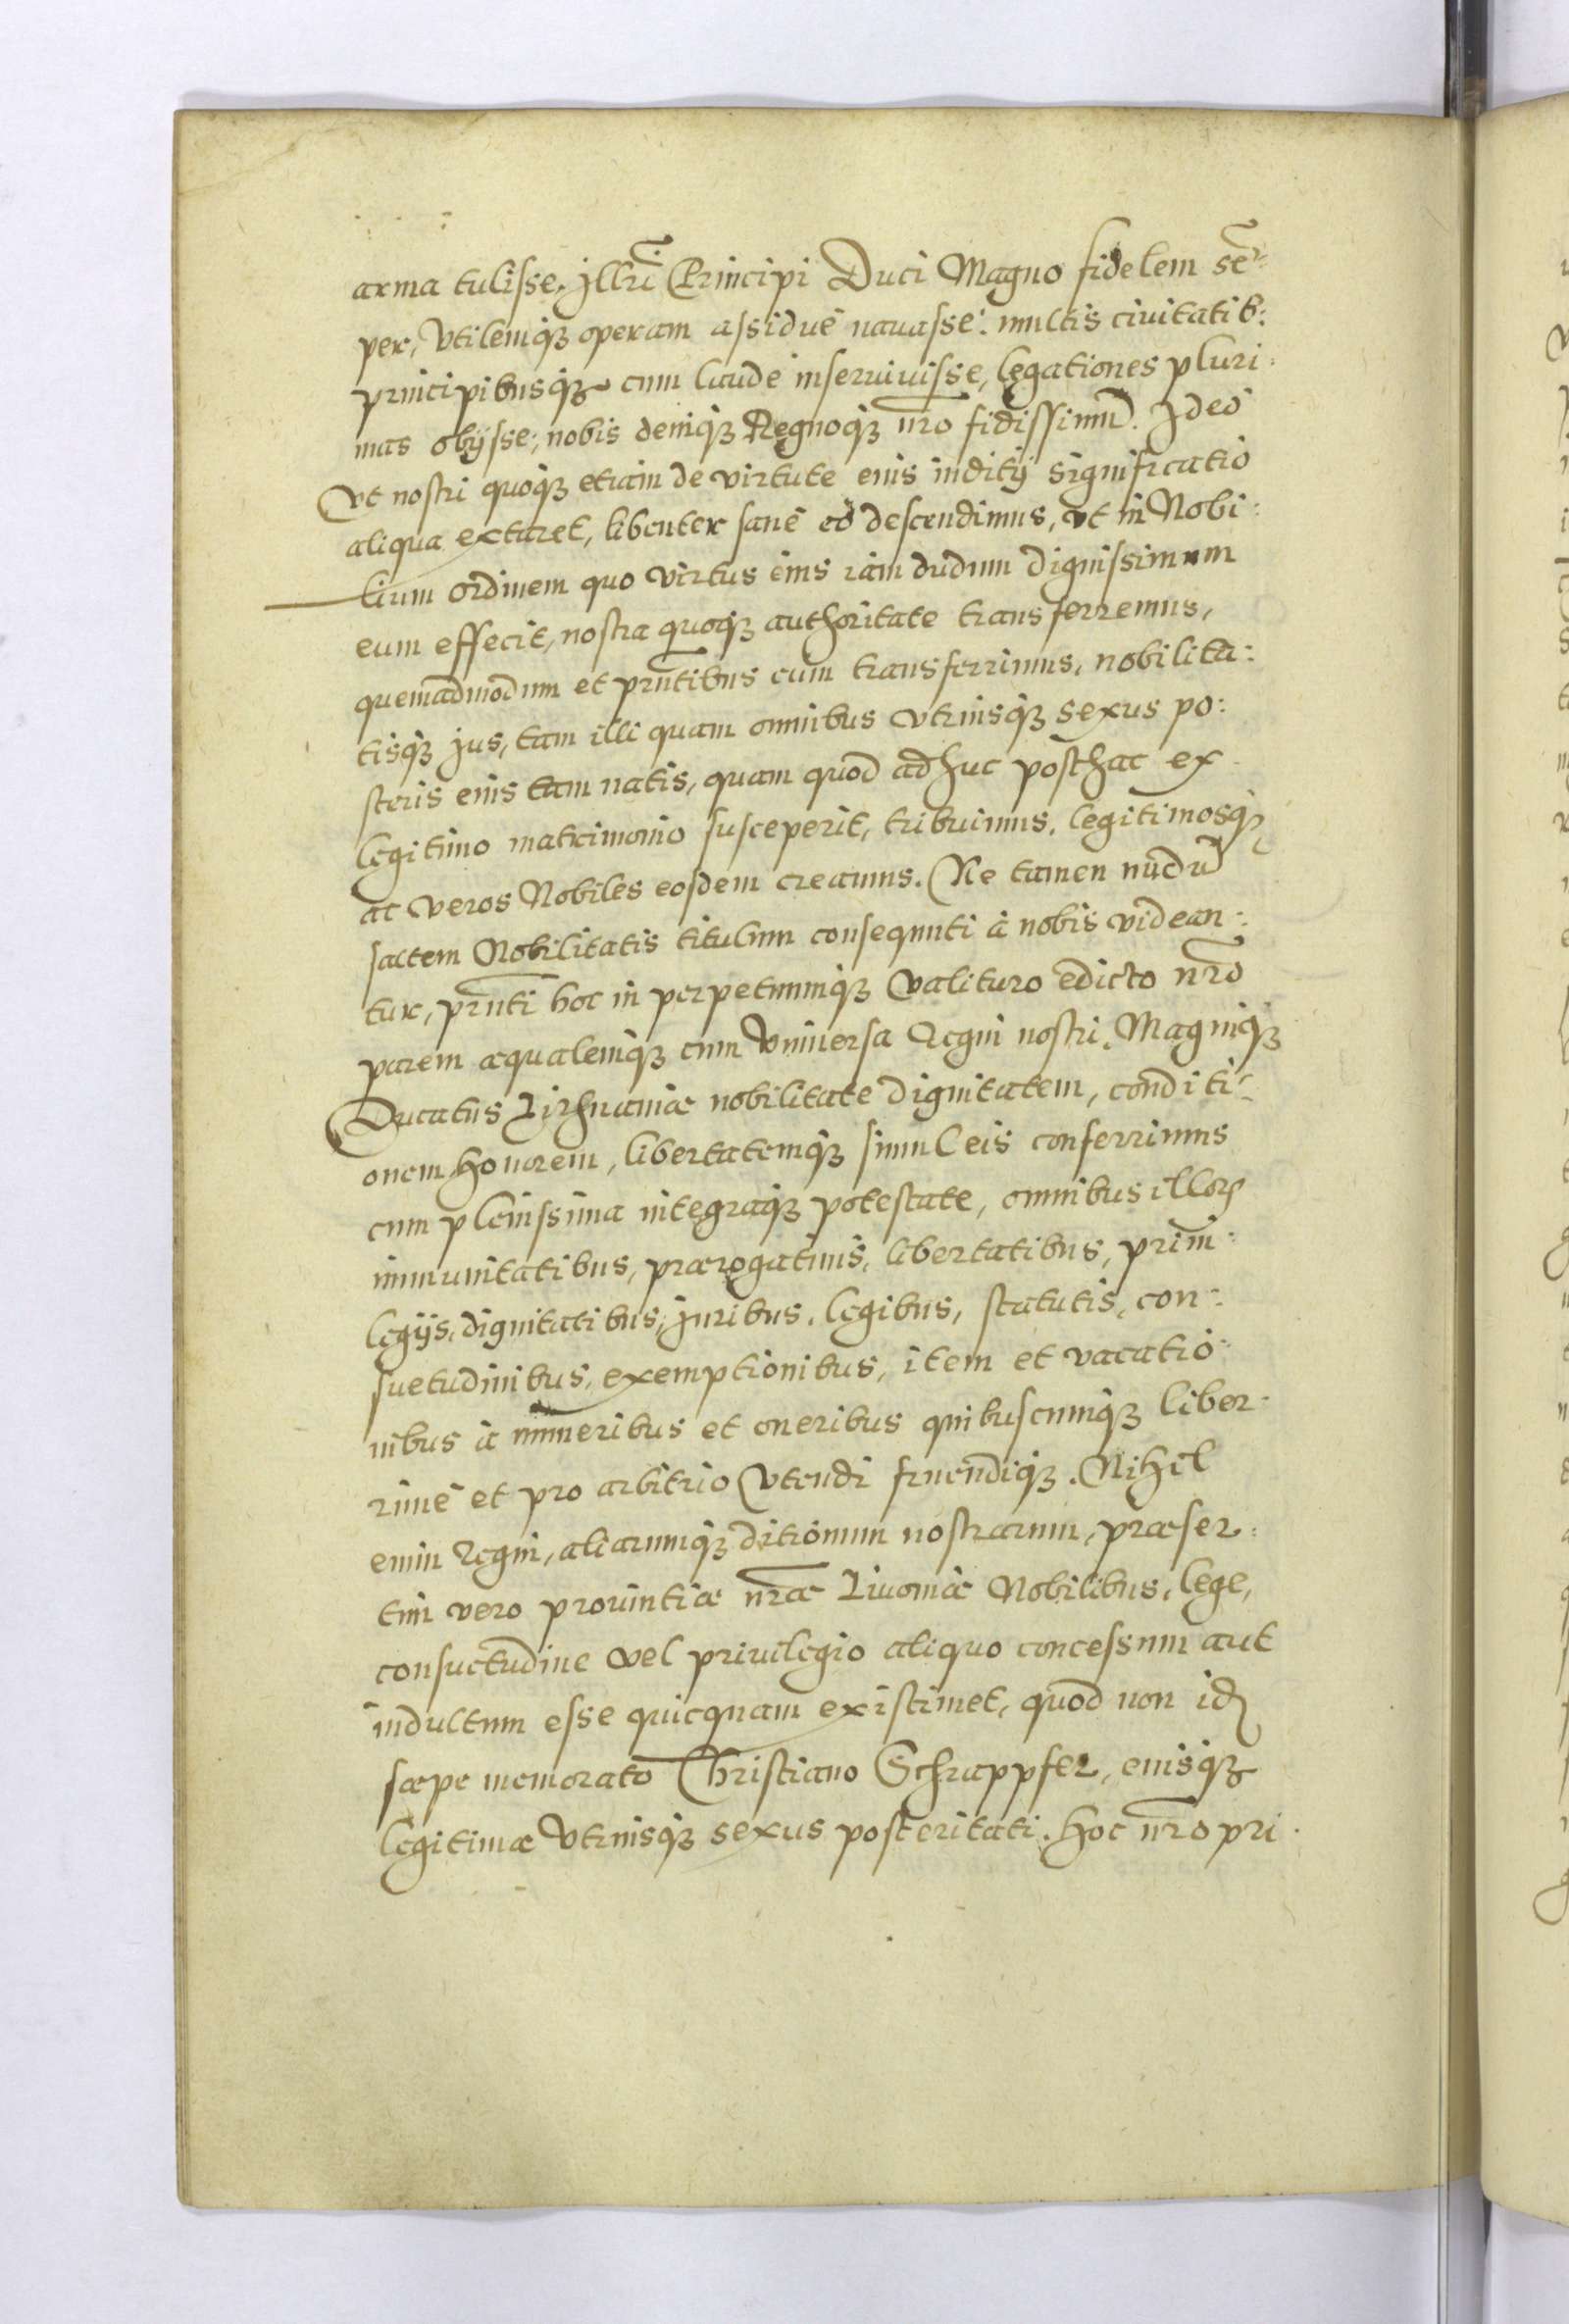 arma tulisse. Jllrī Principi Duci Magno fidelem sē-
per, Vtilemq3 operam assiduè nauasse: multis ciuitatib:
principibusq3 cum laude inseruiuisse, legationes pluri:
mas obijsse; nobis deniq3 Regnoq3 nr̄o fidissimū. Ideò
Vt nostri quoq3 etiam de virtute eius inditij significatio
aliqua extaret, libenter sanè eò descendimus, vt in Nobi:
lium ordinem quo virtus eius iam dudum dignissimum
eum effecit, nostra quoq3 authoritate transferremus,
quemadmodum et pr̄ntibus eum transferrimus, nobilita:
tisq3 jus, tam illi quam omnibus vtriusq3 sexus po:
steris eius tam natis, quam quod adhuc posthac ex
legitimo matrimonio susceperit, tribuimus, legitimosq3
ac veros Nobiles eosdem creamus. Ne tamen nudū
saltem Nobilitatis titulum consequuti à nobis videan:
tur, pr̄nti hoc in perpetuumq3 valituro edicto nr̄o
parem æqualemq3 cum vniuersa Regni nostri, Magniq3
Ducatus Lithuaniæ nobilitate dignitatem, conditi:
onem honorem, libertatemq3 simul eis conferrimus
cum plenissima integraq3 potestate, omnibus illoꝝ
immunitatibus, prærogatiuis, libertatibus, priui:
legijs, dignitatibus, juribus, legibus, statutis, con:
suetudinibus, exemptionibus, item et vacatio:
nibus à muneribus et oneribus quibuscumq3 liber:
rimè et pro arbitrio vtendi fruendiq3. Nihil
enim Regni, aliarumq3 ditionum nostrarum, præser:
tim vero prouintiæ nr̄æ Liuoniæ Nobilibus, lege,
consuetudine vel priuilegio aliquo concessum aut
indultum esse quicquam existimet, quod non idꝫ
sæpe memorato Christiano Schrappfer, eiusq3
legitimæ vtriusq3 sexus posteritati. hoc nr̄o pri: